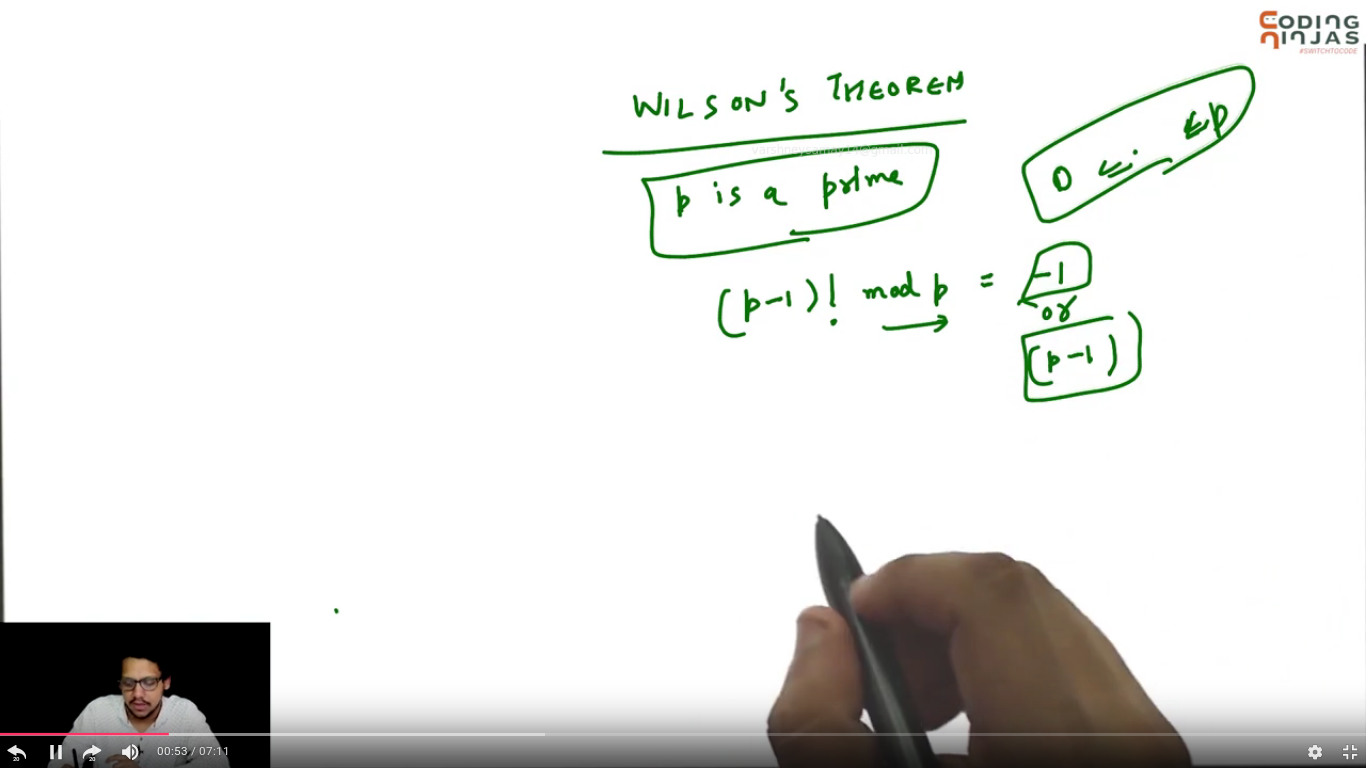 CODING
NINJAS
#SWITCHTOCODE
WILSON'S THEOREM
p is a prime
0 ≤ ≤ p
(p-1)! mod p = -1
or
(p-1)
20
20
00:53 / 07:11